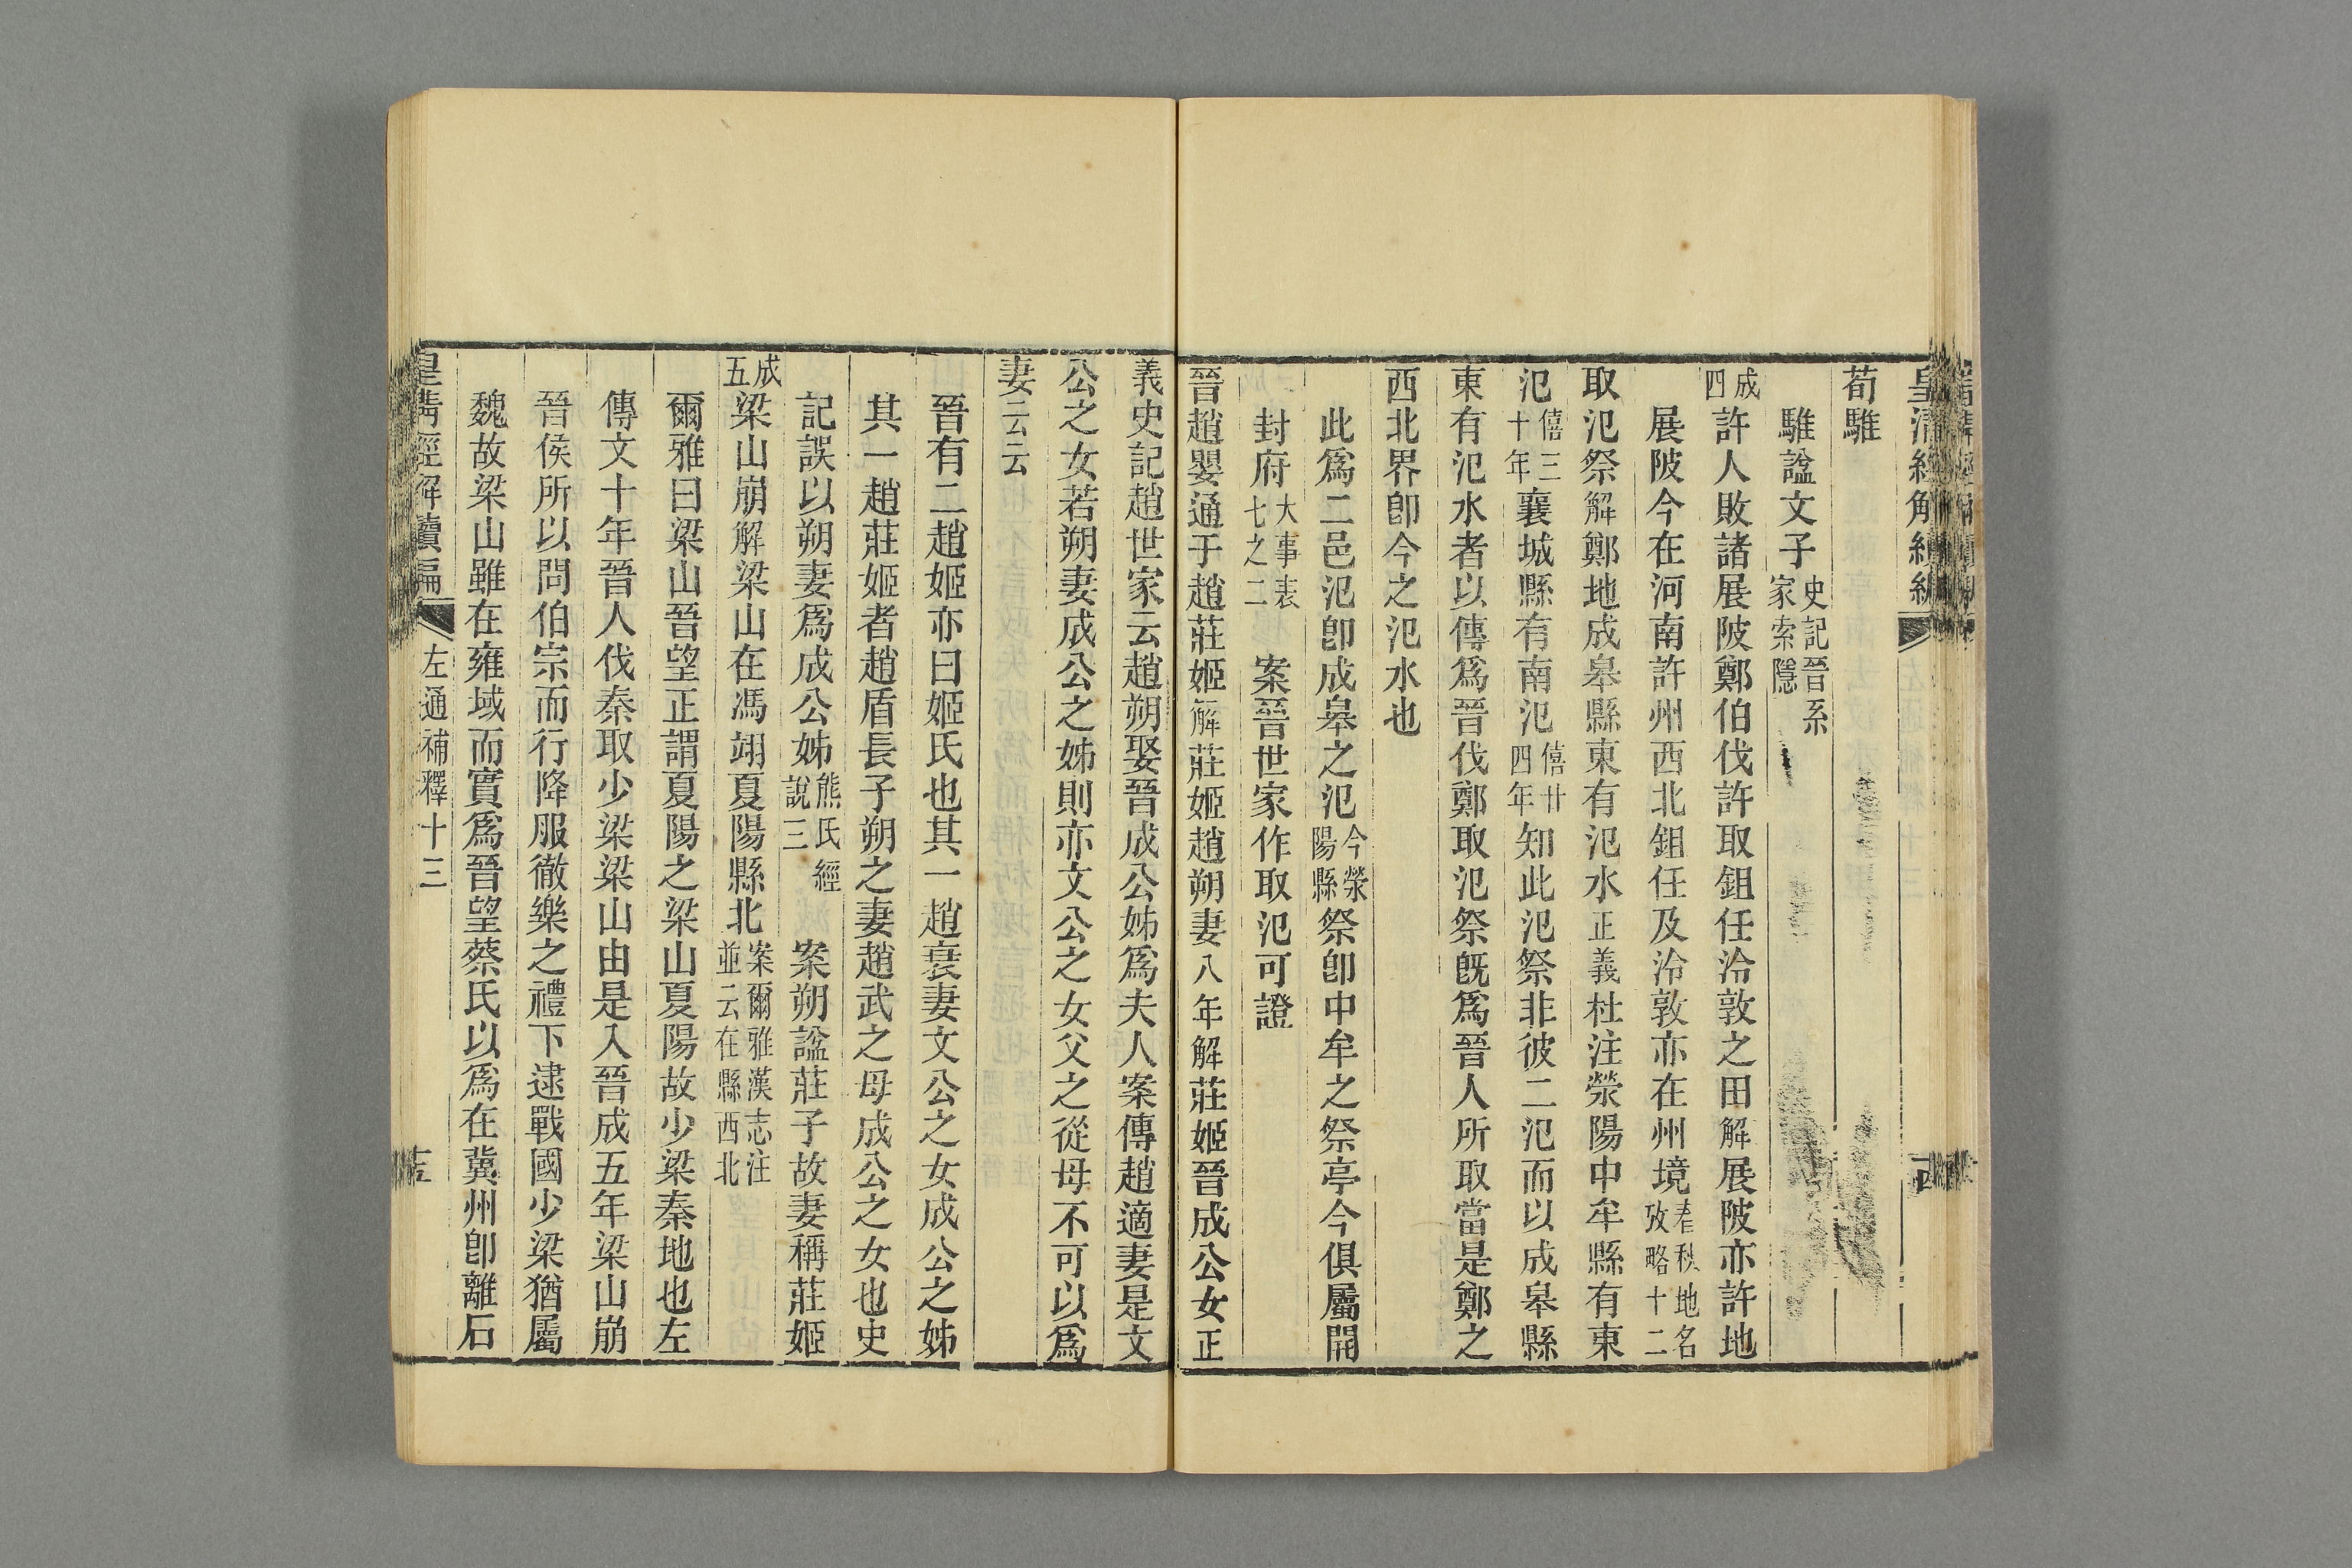 荀騅
騅諡文子史記晉系家索隱
成四許人敗諸展陂鄭伯伐許取鉏任泠敦之田解展陂亦許地
展陂今在河南許州西北鉏任及泠敦亦在州境春秋地名攷略十二
取氾祭解鄭地成皋縣東有氾水正義杜注滎陽中牟縣有東
氾僖三十年襄城縣有南氾僖廿四年知此氾祭非彼二氾而以成皋縣
東有氾水者以傳爲晉伐鄭取氾祭旣爲晉人所取當是鄭之
西北界卽今之氾水也
此爲二邑氾卽成皋之氾今滎陽縣祭卽中牟之祭亭今俱屬開
封府大事表七之二案晉世家作取氾可證
晉趙嬰通于趙莊姬解莊姬趙朔妻八年解莊姬晉成公女正
義史記趙世家云趙朔娶晉成公姊爲夫人案傳趙適妻是文
公之女若朔妻成公之姊則亦文公之女父之從母不可以爲
妻云云
晉有二趙姬亦曰姬氏也其一趙衰妻文公之女成公之姊
其一趙莊姬者趙盾長子朔之妻趙武之母成公之女也史
記誤以朔妻爲成公姊熊氏經說三案朔諡莊子故妻稱莊姬
成五梁山崩解梁山在馮翊夏陽縣北案爾雅漢志注並云在縣西北
爾雅曰梁山晉望正謂夏陽之梁山夏陽故少梁秦地也左
傳文十年晉人伐秦取少梁梁山由是入晉成五年梁山崩
晉侯所以問伯宗而行降服徹樂之禮下逮戰國少梁猶屬
魏故梁山雖在雍域而實爲晉望蔡氏以爲在冀州卽離石
皇清經解續編 左通補釋十三